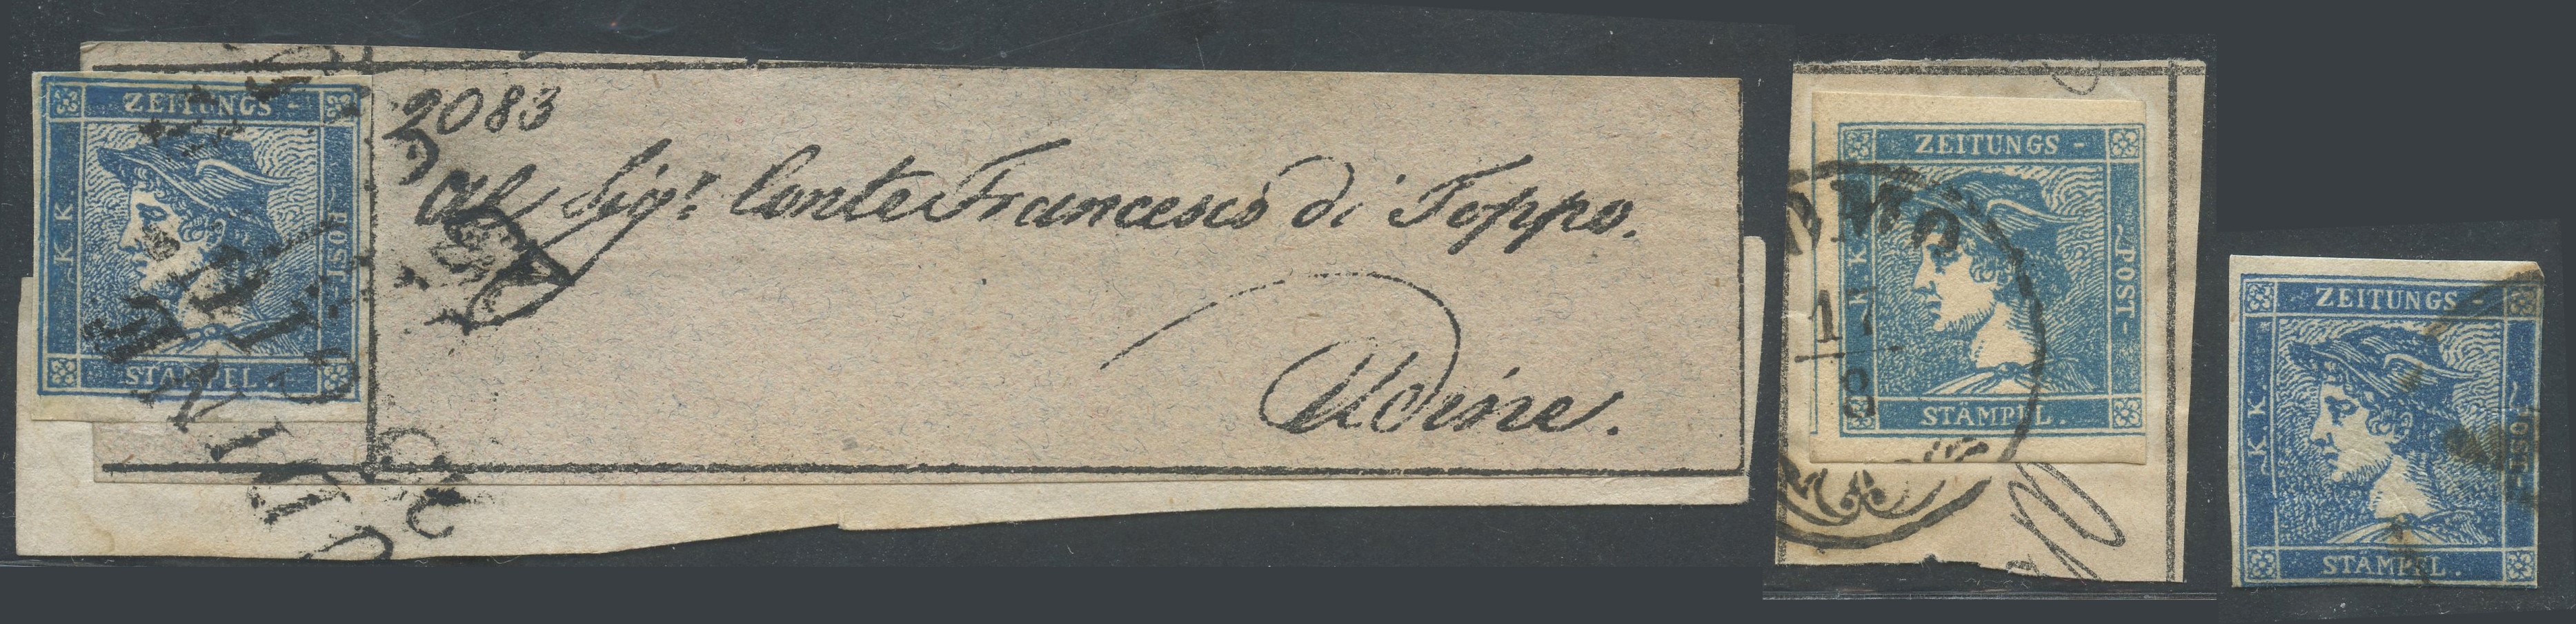 ZEITUNGS -
K. K.
POST -
STÄMPEL.
2083
Al Sigr. Conte Francesco di Toppo.
Udine.
UDINE
ZEITUNGS -
K. K.
POST -
STÄMPEL.
OMO
17
8
ZEITUNGS -
K. K.
POST -
STÄMPEL.